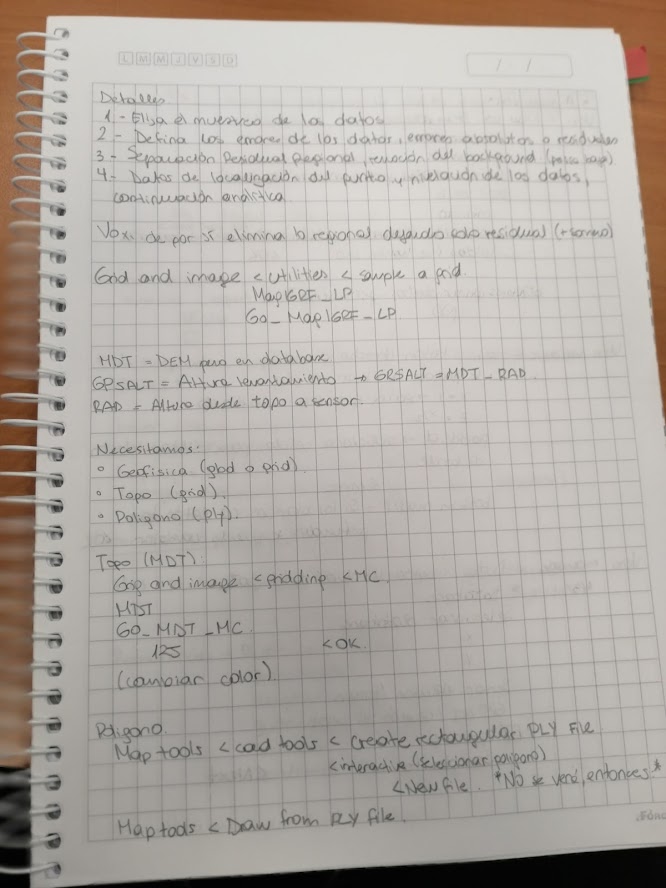 L M M J V S D
/ /
Detalles
1 - Elija el muestreo de los datos
2 - Defina los errores de los datos, errores absolutos o residuales
3 - Separación Residual Regional, remoción del background (paso bajo)
4 - Datos de localización del punto y nivelación de los datos,
continuación analítica
Voxi de por si elimina lo regional dejando solo residual (+somero)
Grid and image < utilities < sample a grid.
MapIGRF_LP
GO_MapIGRF_LP
MDT = DEM pero en database
GPSALT = Altura levantamiento → GPSALT = MDT - RAD
RAD = Altura desde topo a sensor.
Necesitamos:
° Geofísica (gbd o grid)
° Topo (grid).
° Poligono (ply).
Topo (MDT)
Grip and image < gridding < MC
MDT
GO_MDT_MC.
125 < OK.
(cambiar color)
Poligono.
Map tools < cad tools < Create rectangular PLY File
< interactive (seleccionar poligono)
< New file. *No se verá, entonces*
Map tools < Draw from PLY file.